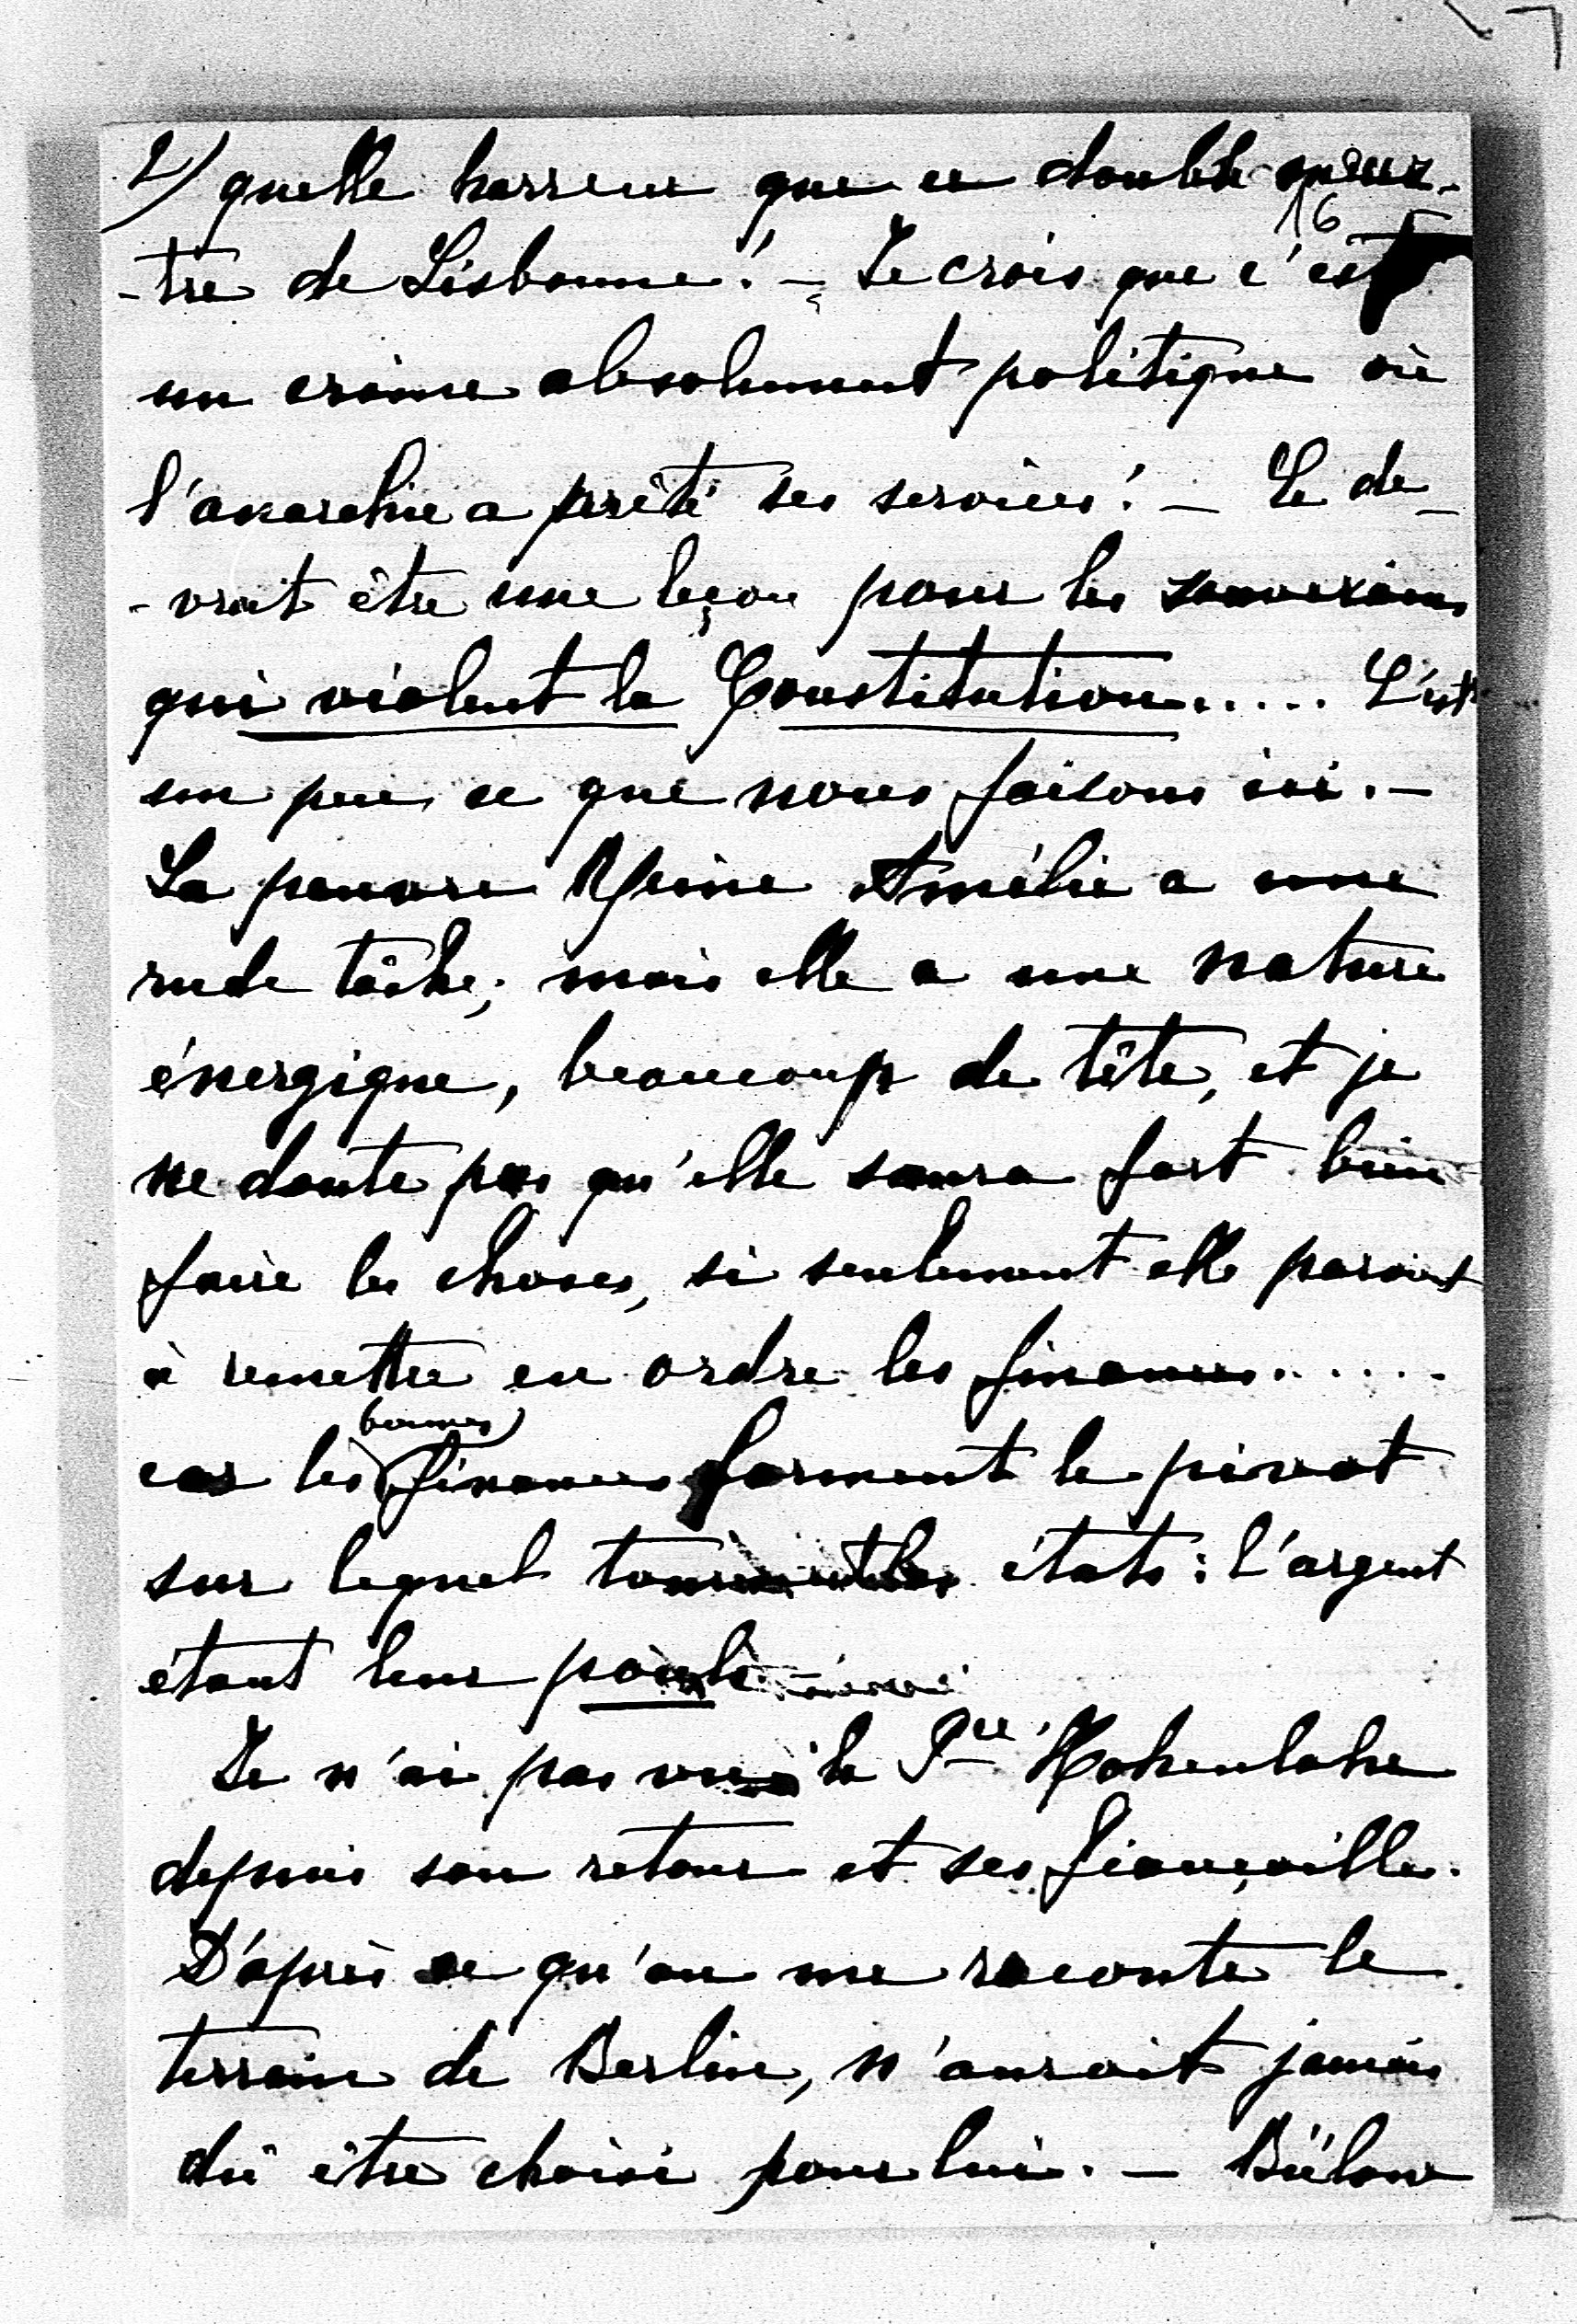 2) quelle horreur que ce double meur-
16
-tre de Lisbonne! - Je crois que c'est
un crime absolument politique où
l'anarchie a prêté ses services! - Ce de-
-vrait être une leçon pour les souverains
qui violent la Constitution..... C'est
un peu ce que nous faisons ici. -
La pauvre Reine Amélie a une
rude tâche; mais elle a une nature
énergique, beaucoup de tête, et je
ne doute pas qu'elle saura fort bien
faire les choses, si seulement elle parvient
à remettre en ordre les finances......
bonnes
car les finances forment le pivot
sur lequel tournent les états: l'argent
étant leur
Je n'ai pas vu le Pce Hohenlohe
depuis son retour et ses fiançailles.
D'après ce qu'on me raconte le
terrain de Berlin, n'aurait jamais
dû être choisi pour lui. - Bülow